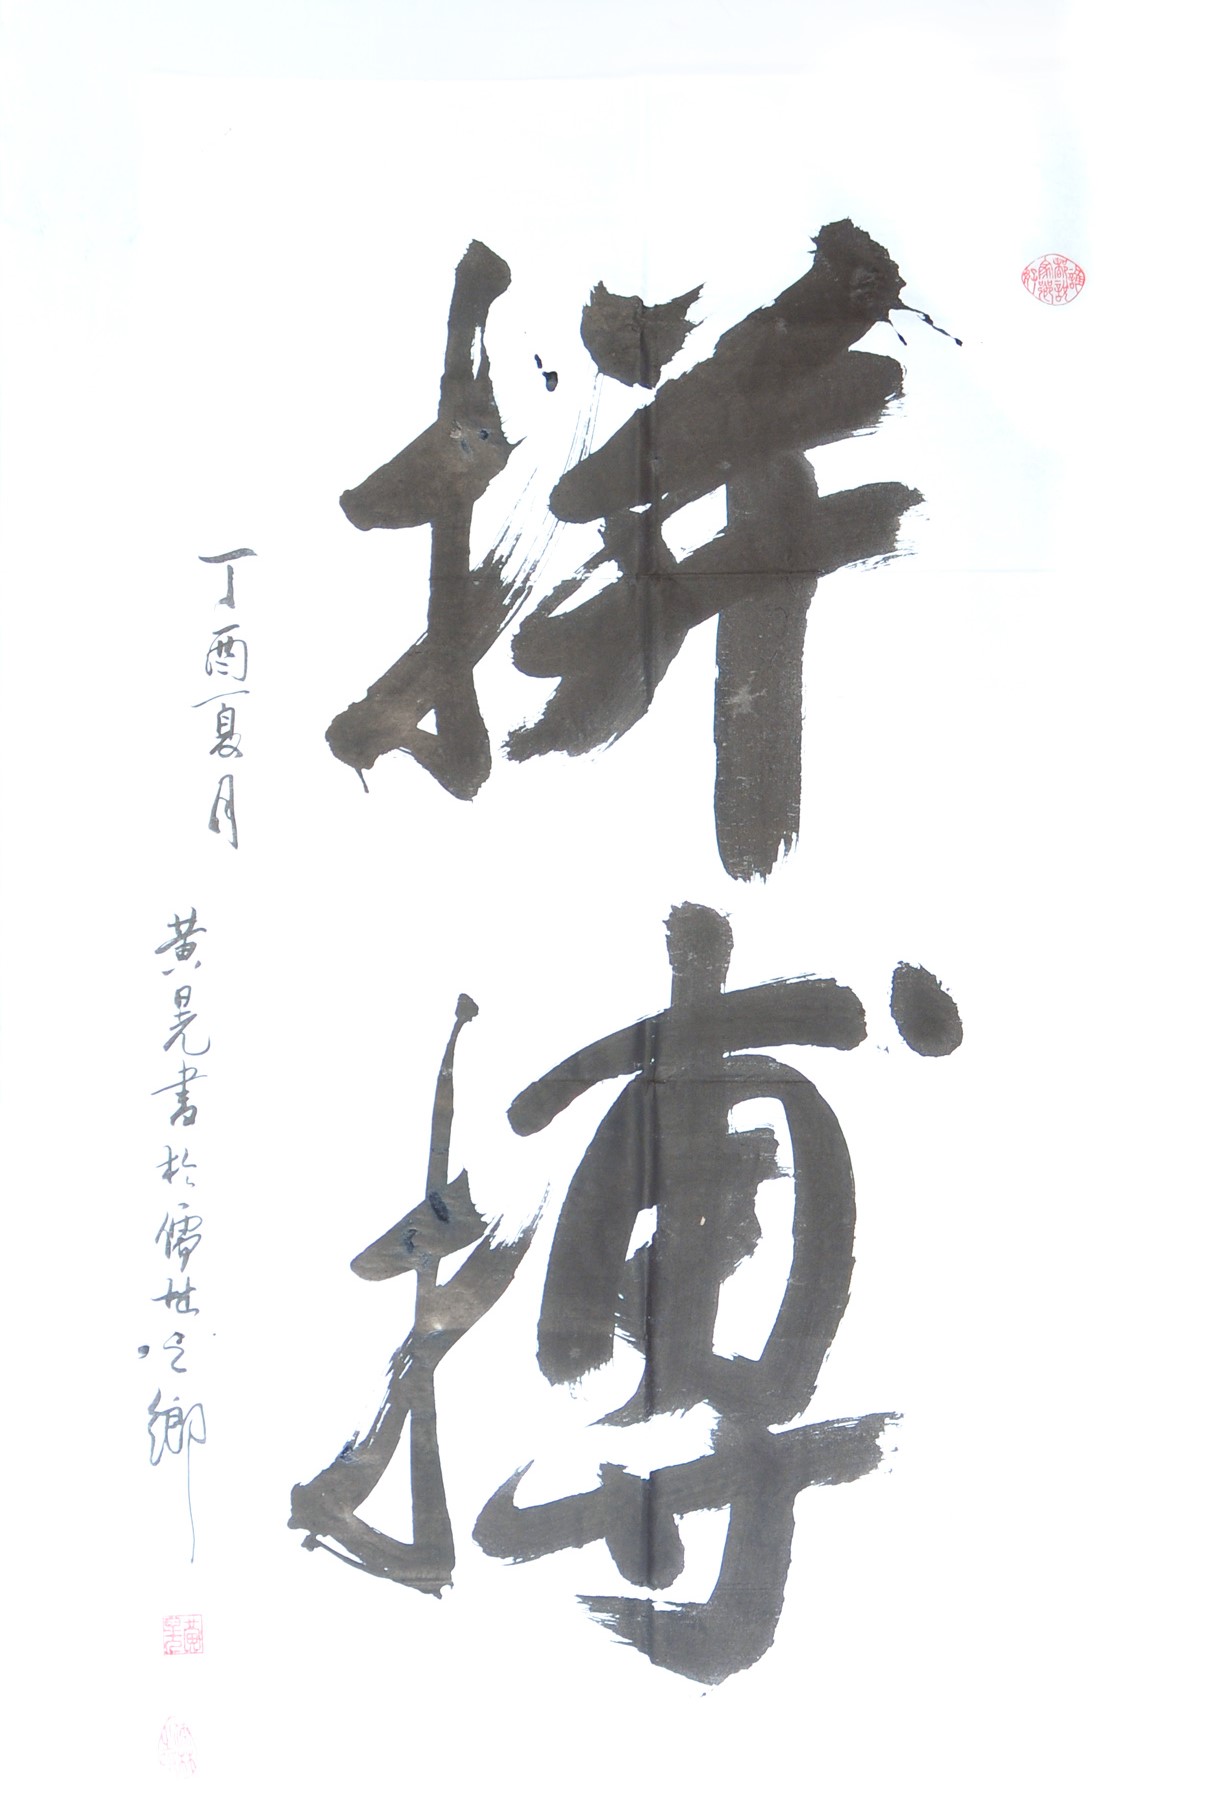 拼搏
丁酉夏月
黄晃書於儒林之鄉
黄晃